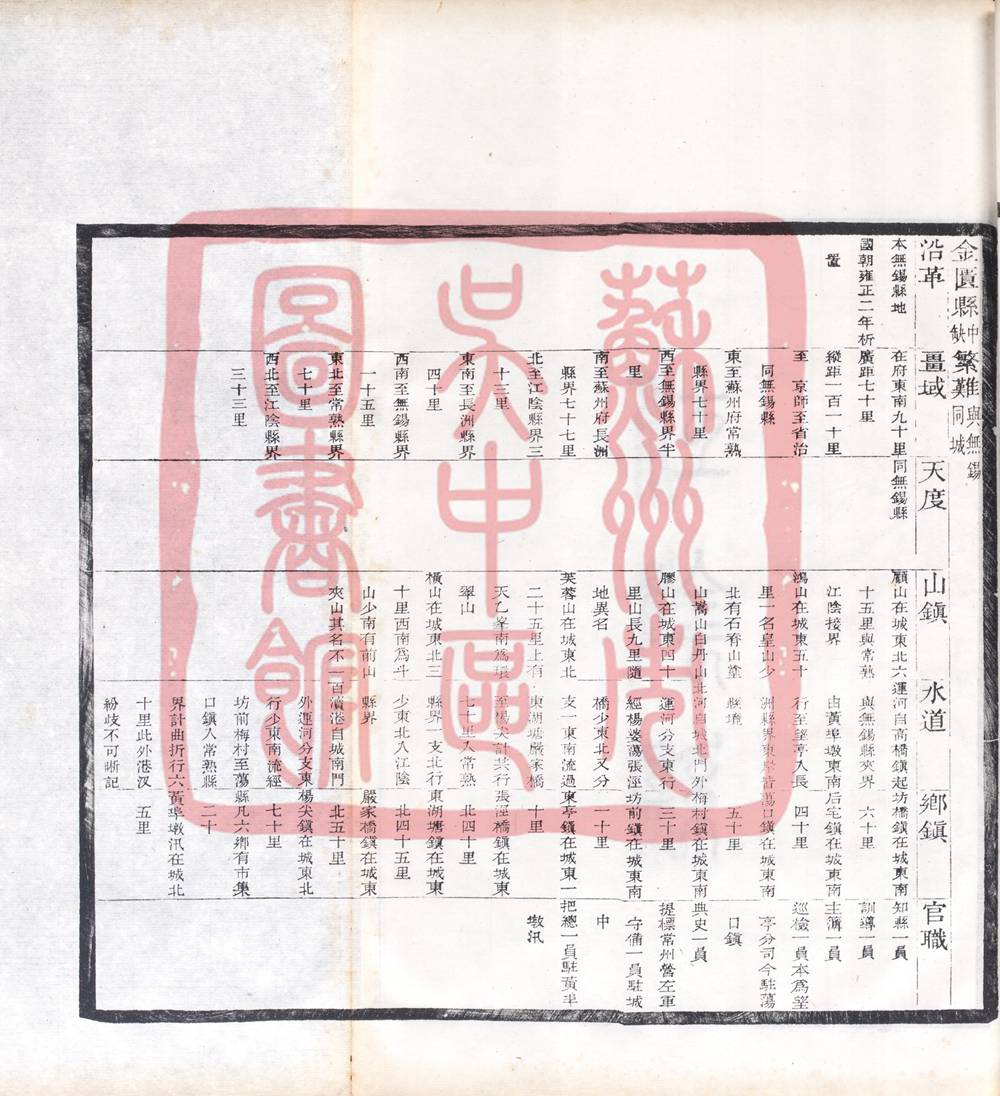 金匱縣中缺繁難與無錫同城
沿革
本無錫縣地
國朝雍正二年析
置
疆域
在府東南九十里
廣距七十里
縱距一百一十里
至 京師至省治
同無錫縣
東至蘇州府常熟
縣界七十里
西至無錫縣界半
里
南至蘇州府長洲
縣界七十七里
北至江陰縣界三
十三里
東南至長洲縣界
四十里
西南至無錫縣界
一十五里
東北至常熟縣界
七十里
西北至江陰縣界
三十三里
天度
同無錫縣
山鎮
顧山在城東北六
十五里與常熟
江陰接界
鴻山在城東五十
里一名皇山少
北有石脊山堂
山嵩山白丹山
膠山在城東四十
里山長九里隨
地異名
芙蓉山在城東北
二十五里上有
天乙峯南爲環
翠山
橫山在城東北三
十里西南爲斗
山少南有前山
夾山其名不一
水道
運河自高橋鎮起
與無錫縣夾界
由黃埠墩東南
行至望亭入長
洲縣界東岸皆
縣境
北河自城北門外
運河分支東行
經楊婆蕩張涇
橋少東北又分
支一東南流過
東湖塘嚴家橋
至楊尖計共行
七十里入常熟
縣界一支北行
少東北入江陰
縣界
百瀆港自城南門
外運河分支東
行少東南流經
坊前梅村至蕩
口鎮入常熟縣
界計曲折行六
十里此外港汊
紛歧不可晰記
鄉鎮
坊橋鎮在城東南
六十里
后宅鎮在城東南
四十里
蕩口鎮在城東南
五十里
梅村鎮在城東南
三十里
坊前鎮在城東南
二十里
東亭鎮在城東一
十里
張涇橋鎮在城東
北四十里
東湖塘鎮在城東
北四十五里
嚴家橋鎮在城東
北五十里
楊尖鎮在城東北
七十里
縣凡六鄉有市集
二十
黃埠墩汛在城北
五里
官職
知縣一員
訓導一員
主簿一員
巡檢一員本爲望
亭分司今駐蕩
口鎮
典史一員
提標常州營左軍
守備一員駐城
中
把總一員駐黃半
墩汛
蘇州市
吳中區
圖書館